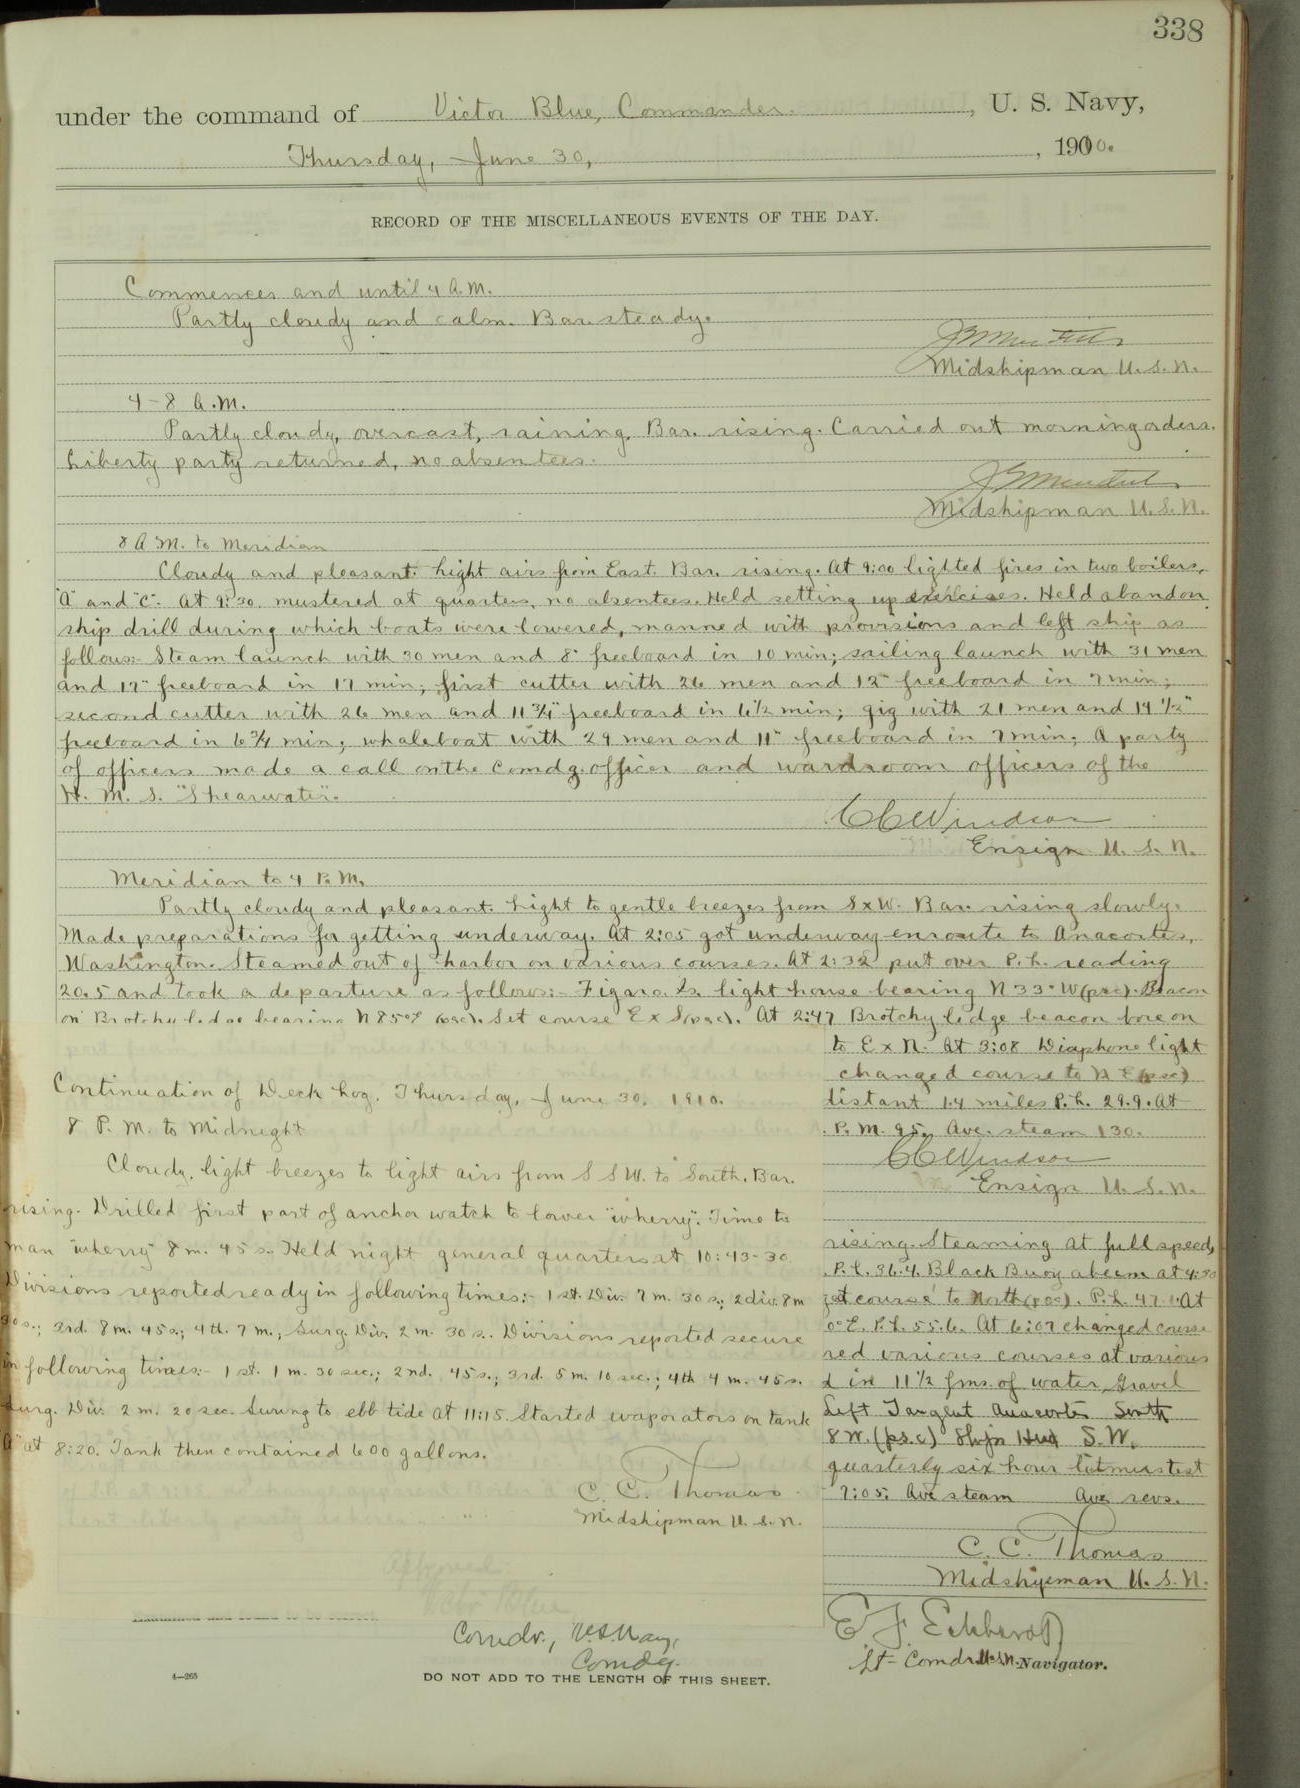 338
under the command of Victor Blue, Commander. , U. S. Navy,
Thursday, June 30, , 1910.
RECORD OF THE MISCELLANEOUS EVENTS OF THE DAY.
Commences and until 4 A.M.
Partly cloudy and calm. Bar. steady.
Midshipman U.S.N.
4-8 A.M.
Partly cloudy, overcast, raining. Bar. rising. Carried out morning orders.
Liberty party returned, no absentees.
Midshipman U.S.N.
8 A.M. to Meridian
Cloudy and pleasant. Light airs from East. Bar. rising. At 9:00 lighted fires in two boilers,
"A" and "C". At 9:30 mustered at quarters, no absentees. Held setting up exercises. Held abandon
ship drill during which boats were lowered, manned with provisions and left ship as
follows:- Steam launch with 30 men and 8" freeboard in 10 min; sailing launch with 31 men
and 17" freeboard in 17 min; first cutter with 26 men and 12" freeboard in 7 min;
second cutter with 26 men and 11 3/4" freeboard in 6 1/2 min; gig with 21 men and 14 1/2"
freeboard in 6 3/4 min; whaleboat with 29 men and 11" freeboard in 7 min; A party
of officers made a call on the Comdg. officer and wardroom officers of the
H. M. S. "Shearwater".
CCWindsor
Ensign U. S. N.
Meridian to 4 P.M.
Partly cloudy and pleasant. Light to gentle breezes from SxW. Bar. rising slowly.
Made preparations for getting underway. At 2:05 got underway enroute to Anacortes,
Washington. Steamed out of harbor on various courses. At 2:32 put over P.L. reading
20.5 and took a departure as follows:- Figaro Is. light house bearing N 33° W (psc). Beacon
on Brotchy ledge bearing N 85° E (psc). Set course E x S (psc). At 2:47 Brotchy ledge beacon bore on
to E x N. At 3:08 Diaphone light
changed course to N E (psc)
distant 1.4 miles P.L. 29.9. At
P. M. 95. Ave. steam 130.
CCWindsor
Ensign U.S.N.
rising. Steaming at full speed,
P.L. 36.4. Black Buoy abeam at 4:30
set course to North (psc). P.L. 47. At
0° E. P.L. 55.6. At 6:07 changed course
red various courses at various
d in 11 1/2 fms. of water, Gravel
Left Tangent Anacortes South
8 W. (p.s.c) Ship's S.W.
quarterly six hour test
7:05. Ave steam Ave revs.
C. C. Thomas
Midshipman U.S.N.
Continuation of Deck Log. Thursday, June 30, 1910.
8 P. M. to Midnight
Cloudy, light breezes to light airs from S S W. to South. Bar.
rising. Drilled first part of anchor watch to lower "wherry". Time to
man "wherry" 8 m. 45 s. Held night general quarters at 10:43-30.
Divisions reported ready in following times:- 1st. Div. 7 m. 30 s.; 2 div. 8 m
30 s.; 3rd. 8 m. 45 s.; 4th. 7 m., Surg. Div. 2 m. 30 s.. Divisions reported secure
in following times:- 1 st. 1 m. 30 sec.; 2nd. 45 s.; 3rd. 5 m. 10 sec.; 4th 4 m. 45 s.
Surg. Div. 2 m. 20 sec. Swung to ebb tide at 11:15. Started evaporators on tank
"A" at 8:20. Tank then contained 600 gallons.
C. C. Thomas
Midshipman U. S. N.
Approved
Victor Blue
Comdr., U.S. Navy,
Comdg.
Lt- Comdr. U.S.N. Navigator.
4—265
DO NOT ADD TO THE LENGTH OF THIS SHEET.